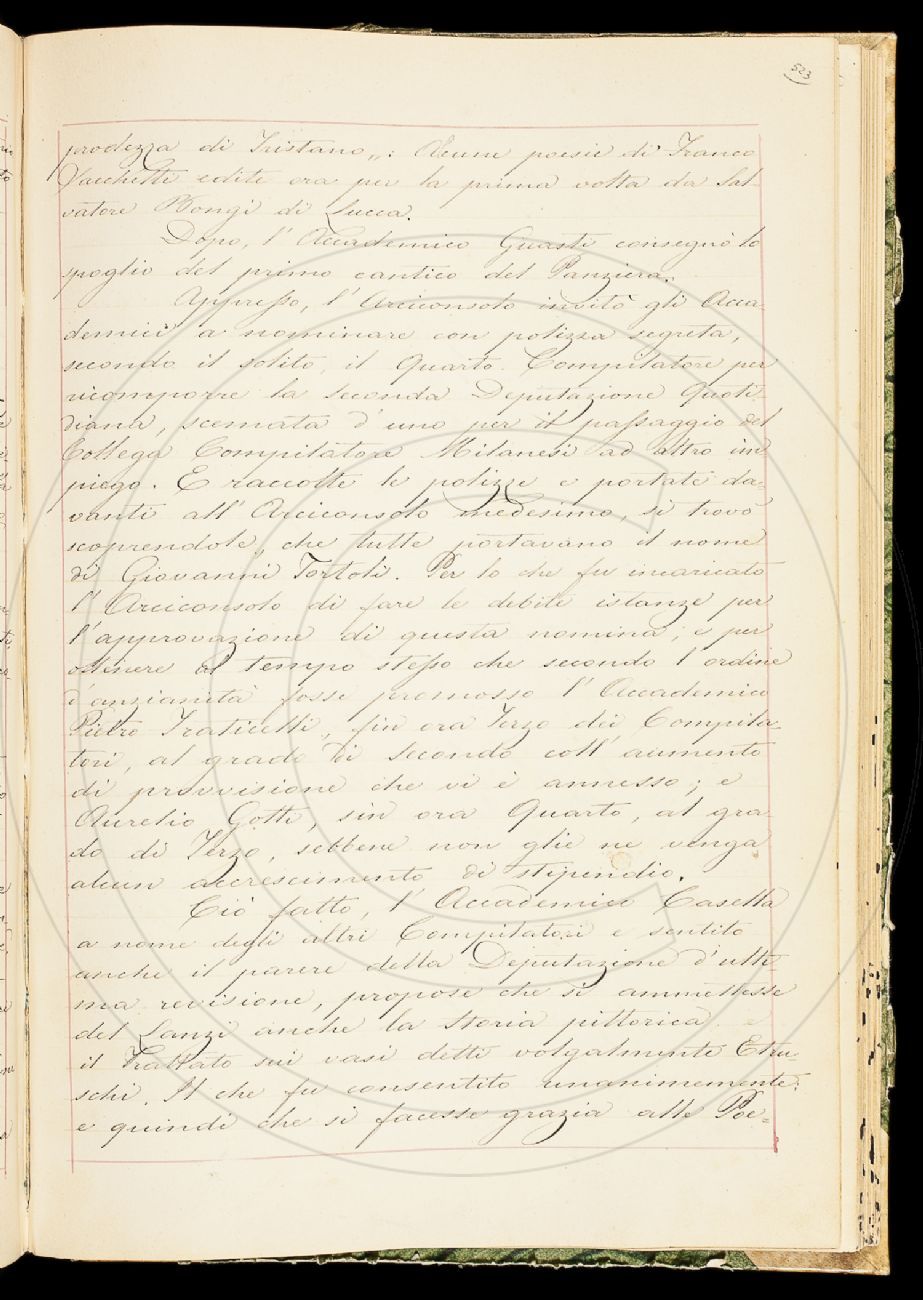 523
prodezza di Tristano„: Alcune poesie di Franco
Sacchetti edite ora per la prima volta da Sal-
vatore Bongi di Lucca.
Dopo, l'Accademico Guasti consegnò lo
spoglio del primo cantico del Panziera.
Appresso, l'Arciconsolo invitò gli Acca-
demici a nominare con polizza segreta,
secondo il solito, il Quarto Compilatore per
ricomporre la seconda Deputazione Quoti-
diana, scemata d'uno per il passaggio del
Collega Compilatore Milanesi ad altro im-
piego. E raccolte le polizze e portate da-
vanti all'Arciconsolo medesimo, si trovò
scoprendole, che tutte portavano il nome
di Giovanni Tortoli. Per lo che fu incaricato
l'Arciconsolo di fare le debite istanze per
l'approvazione di questa nomina; e per
ottenere al tempo stesso che secondo l'ordine
d'anzianità fosse promosso l'Accademico
Pietro Fraticelli, fin ora Terzo dei Compila-
tori, al grado di Secondo coll'aumento
di provvisione che vi è annesso; e
Aurelio Gotti, sin ora Quarto, al gra-
do di Terzo, sebbene non glie ne venga
alcun accrescimento di stipendio.
Ciò fatto, l'Accademico Casella
a nome degli altri Compilatori e sentito
anche il parere della Deputazione d'ulti-
ma revisione, propose che si ammettesse
del Lanzi anche la Storia pittorica e
il Trattato sui vasi detti volgalmente Etru-
schi. Il che fu consentito unanimemente:
e quindi che si facesse grazia alle Poe-